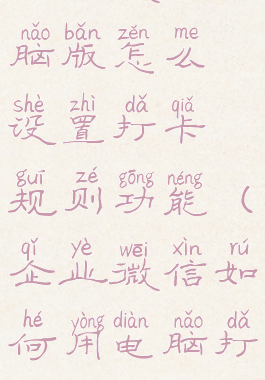 nǎo bǎn zěn me
脑版怎么
shè zhì dǎ qiǎ
设置打卡
guī zé gōng néng
规则功能（
qǐ yè wēi xìn rú
企业微信如
hé yòng diàn nǎo dǎ
何用电脑打